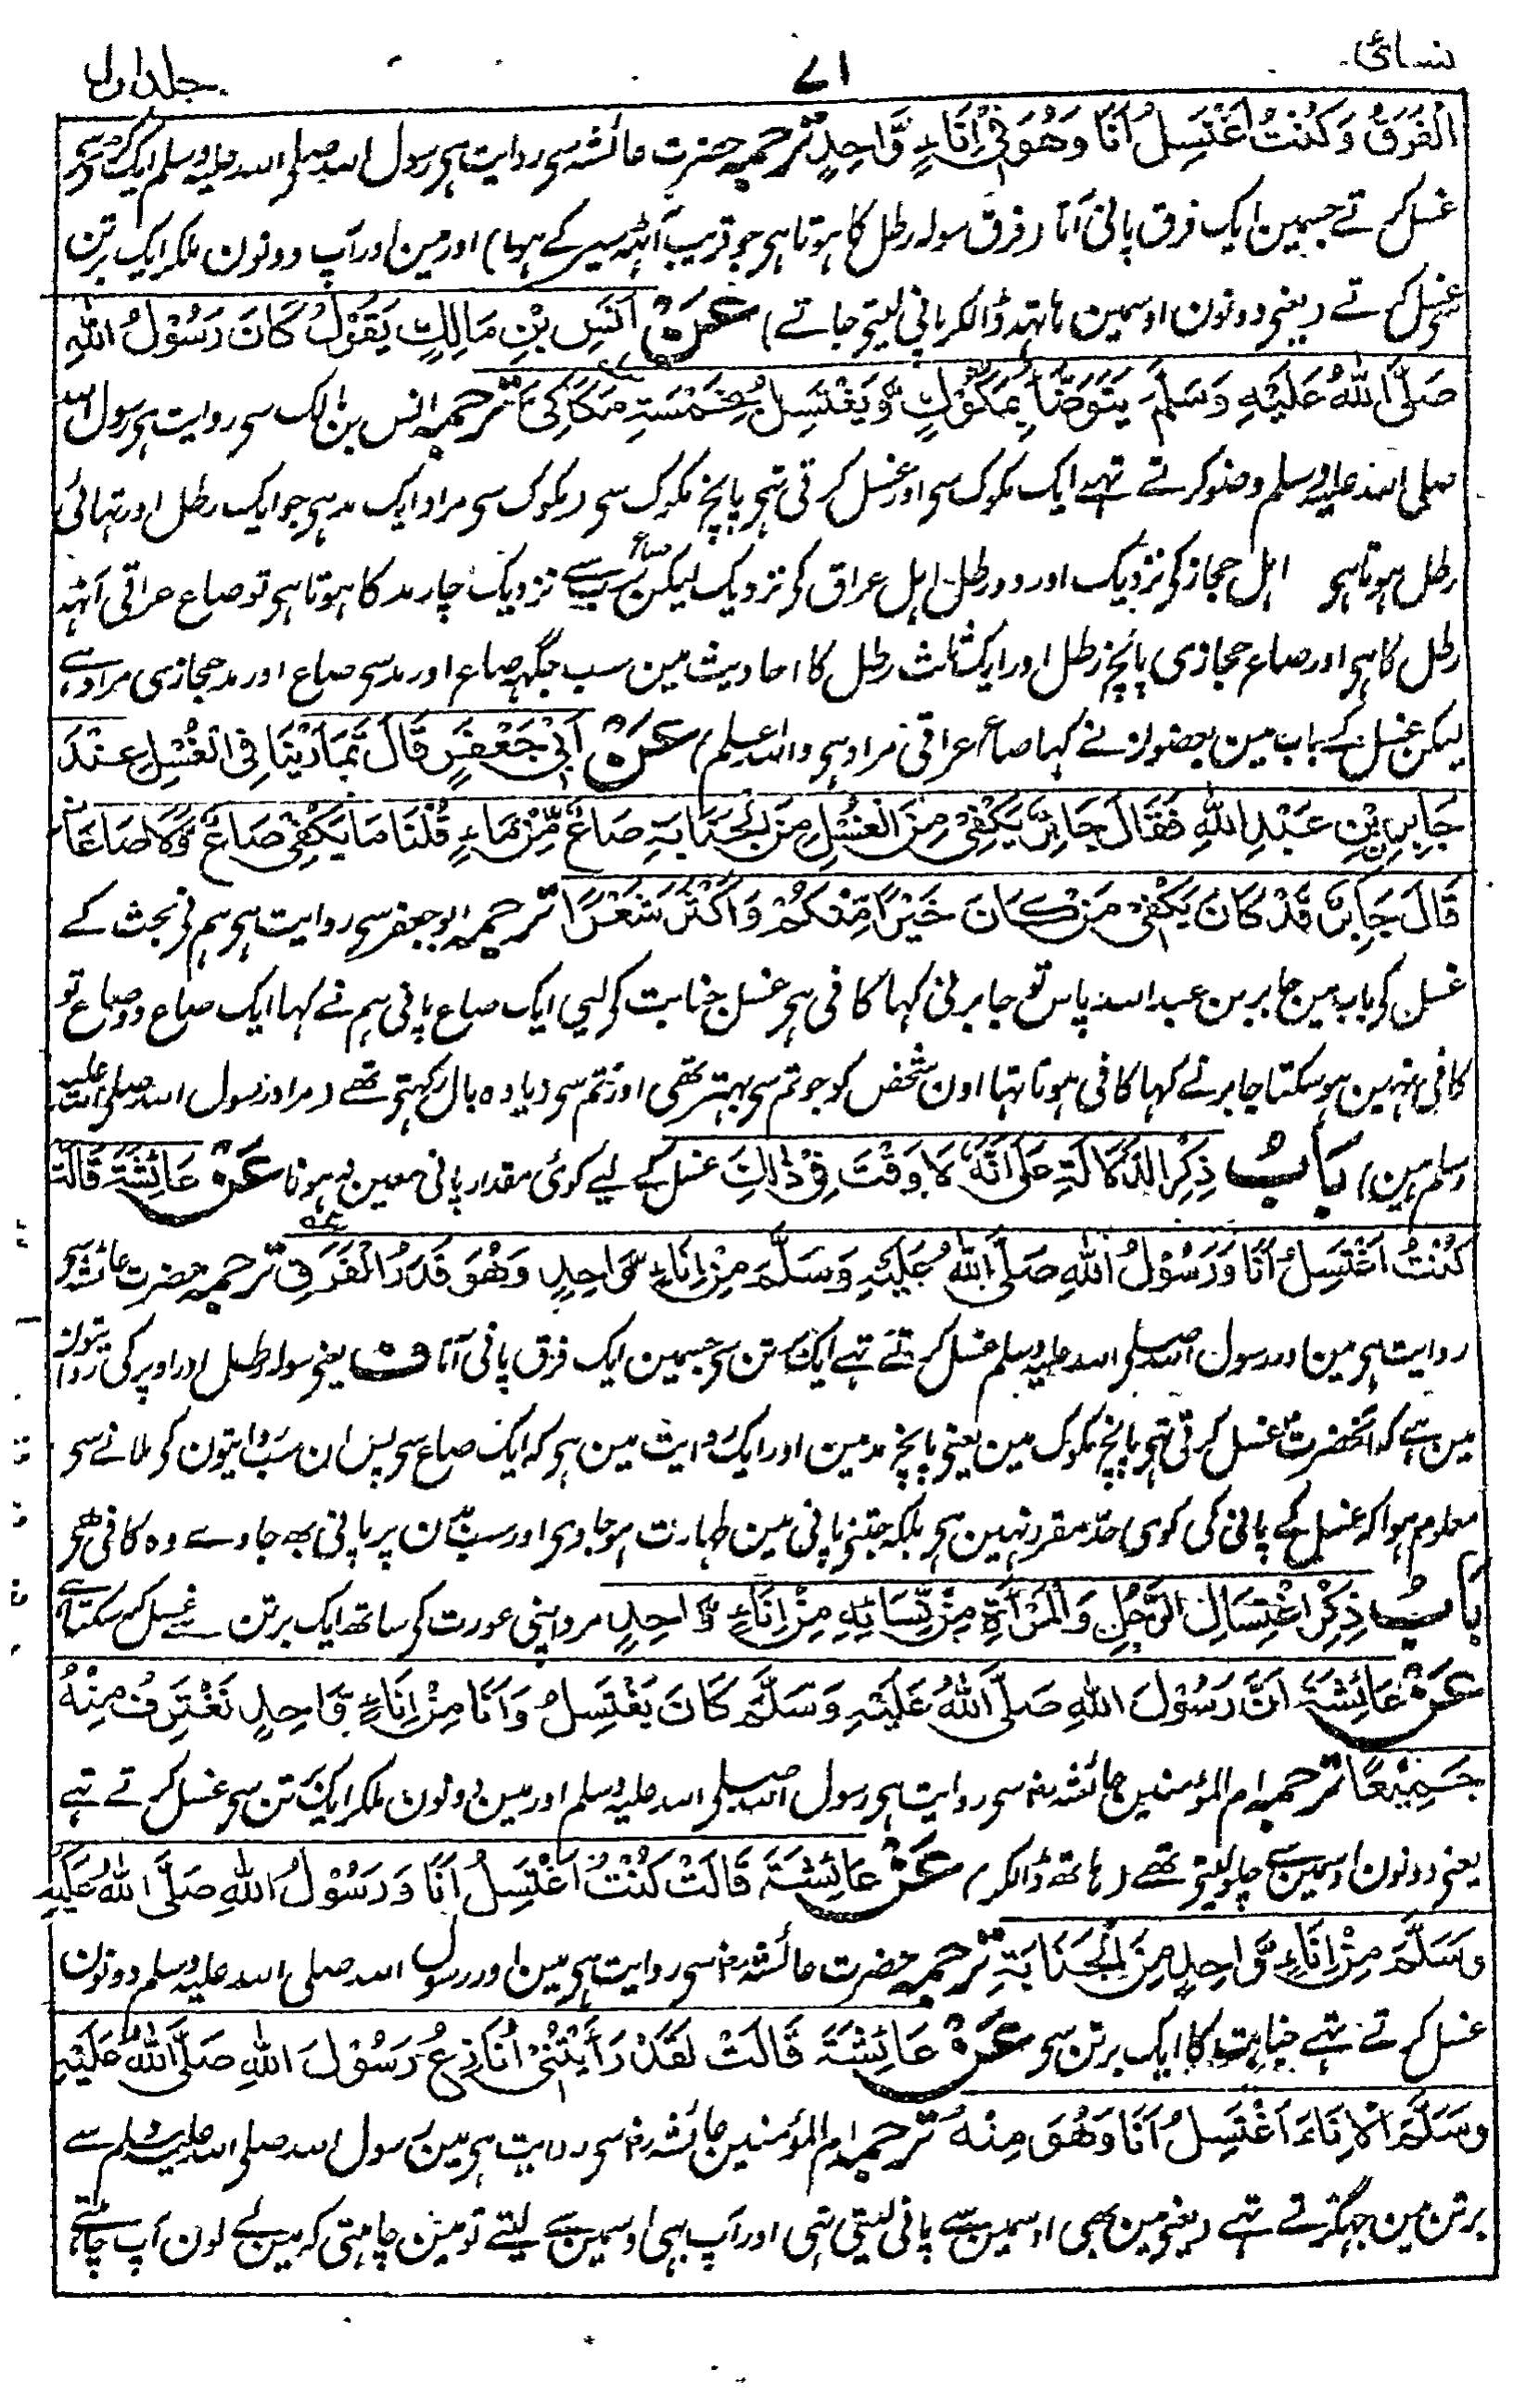 نسائی
۷۱
جلد اول
الْفَرَقُ وَكُنْتُ اَغْتَسِلُ اَنَا وَهُوَ فِیْ اِنَاءٍ وَّاحِدٍ ترجمہ حضرت عائشہ سی روایت ہی رسول اللہ صلی اللہ علیہ وسلم ایک
غسل کرتے جسمین ایک فرق پانی آتا (فرق سولہ رطل کا ہوتا ہی جو قریب آٹھہ سیر کے ہوا) اور مین اور آپ دونون ملکر ایک برتن
سی غسل کرتے (یعنی دونون اوسمین ہاتہہ ڈالکر پانی لیتی جاتے) عَنْ اَنَسِ بْنِ مَالِكٍ يَقُوْلُ كَانَ رَسُوْلُ اللّٰهِ
صَلَّى اللّٰهُ عَلَيْهِ وَسَلَّمَ يَتَوَضَّأُ بِمَكُّوْكٍ وَّيَغْتَسِلُ بِخَمْسَةِ مَكَاكِيَّ ترجمہ انس بن مالک سی روایت ہی رسول اللہ
صلی اللہ علیہ وسلم وضو کرتے تہے ایک مکوک سی اور غسل کرتی تہی پانچ مکوک سی (مکوک سی مراد ایک مد ہی جو ایک رطل اور تہائی
رطل ہوتا ہی اہل حجاز کی نزدیک اور دو رطل اہل عراق کی نزدیک لیکن صاع سب کے نزدیک چار مد کا ہوتا ہی تو صاع عراقی آٹہہ
رطل کا ہی اور صاع حجازی پانچ رطل اور ایک ثلث رطل کا احادیث مین سب جگہہ صاع اور مد سی صاع اور مد حجازی مراد ہے،
لیکن غسل کے باب مین بعضون نے کہا صاع عراقی مراد ہی واللہ اعلم) عَنْ اَبِیْ جَعْفَرٍ قَالَ تَمَارَيْنَا فِی الْغُسْلِ عِنْدَ
جَابِرِ بْنِ عَبْدِ اللّٰهِ فَقَالَ جَابِرٌ يَكْفِیْ مِنَ الْغُسْلِ مِنَ الْجَنَابَةِ صَاعٌ مِّنْ مَاءٍ قُلْنَا مَا يَكْفِیْ صَاعٌ وَّلَا صَاعَانِ
قَالَ جَابِرٌ قَدْ كَانَ يَكْفِیْ مَنْ كَانَ خَيْرًا مِّنْكُمْ وَاَكْثَرَ شَعْرًا ترجمہ ابوجعفر سی روایت ہی ہم نی بحث کے
غسل کی باب مین جابر بن عبد اللہ پاس تو جابر نی کہا کافی ہی غسل جنابت کی لیی ایک صاع پانی ہم نے کہا ایک صاع دو صاع تو
کافی نہین ہو سکتا جابر نے کہا کافی ہوتا تہا اون شخص کو جو تم سی بہتر تھی اور تم سی زیادہ بال رکہتی تھے (مراد رسول اللہ صلی اللہ علیہ
وسلم ہین) بَابُ ذِكْرِ الدَّلَالَةِ عَلٰى اَنَّهٗ لَا وَقْتَ فِیْ ذٰلِكَ غسل کے لیے کوئی مقدار پانی معین نہ ہونا عَنْ عَائِشَةَ قَالَتْ
كُنْتُ اَغْتَسِلُ اَنَا وَرَسُوْلُ اللّٰهِ صَلَّى اللّٰهُ عَلَيْهِ وَسَلَّمَ مِنْ اِنَاءٍ وَّاحِدٍ وَهُوَ قَدْرُ الْفَرَقِ ترجمہ حضرت عائشہ سی
روایت ہی مین اور رسول اللہ صلی اللہ علیہ وسلم غسل کرتے تہے ایک برتن سی جسمین ایک فرق پانی آتا ف یعنی سولہ رطل اور اوپر کی روایتون
مین ہے کہ آنحضرت غسل کرتی تہی پانچ مکوک مین یعنی پانچ مد مین اور ایک روایت مین ہی کہ ایک صاع سی پس ان سب روایتون کی ملانے سی
معلوم ہوا کہ غسل کے پانی کی کوئی حد مقرر نہین ہی بلکہ جتنی پانی مین طہارت ہو جاوی اور سب بدن پر پانی بہہ جاوے وہ کافی ہی
بَابُ ذِكْرِ اغْتِسَالِ الرَّجُلِ وَالْمَرْأَةِ مِنْ نِّسَائِهٖ مِنْ اِنَاءٍ وَّاحِدٍ مرد اپنی عورت کی ساتھ ایک برتن سے غسل کر سکتا ہے
عَنْ عَائِشَةَ اَنَّ رَسُوْلَ اللّٰهِ صَلَّى اللّٰهُ عَلَيْهِ وَسَلَّمَ كَانَ يَغْتَسِلُ وَاَنَا مِنْ اِنَاءٍ وَّاحِدٍ نَغْتَرِفُ مِنْهُ
جَمِيْعًا ترجمہ ام المؤمنین عائشہ رضہ سی روایت ہی رسول اللہ صلی اللہ علیہ وسلم اور مین دونون ملکر ایک برتن سی غسل کرتے تہے
یعنی دونون اوسمین سے چلو لیتی تھے (ہاتھ ڈالکر) عَنْ عَائِشَةَ قَالَتْ كُنْتُ اَغْتَسِلُ اَنَا وَرَسُوْلُ اللّٰهِ صَلَّى اللّٰهُ عَلَيْهِ
وَسَلَّمَ مِنْ اِنَاءٍ وَّاحِدٍ مِنَ الْجَنَابَةِ ترجمہ حضرت عائشہ رضہ سی روایت ہی مین اور رسول اللہ صلی اللہ علیہ وسلم دونون
غسل کرتے تہے جنابت کا ایک برتن سی عَنْ عَائِشَةَ قَالَتْ لَقَدْ رَاَيْتُنِیْ اُنَازِعُ رَسُوْلَ اللّٰهِ صَلَّى اللّٰهُ عَلَيْهِ
وَسَلَّمَ الْاِنَاءَ اَغْتَسِلُ اَنَا وَهُوَ مِنْهُ ترجمہ ام المؤمنین عائشہ رضہ سی روایت ہی مین رسول اللہ صلی اللہ علیہ وسلم سے
برتن مین جہگڑتے تہے (یعنی مین بھی اوسمین سے پانی لیتی تہی اور آپ بہی اوسمین سے لیتے تو مین چاہتی کہ مین لے لون آپ چاہتے